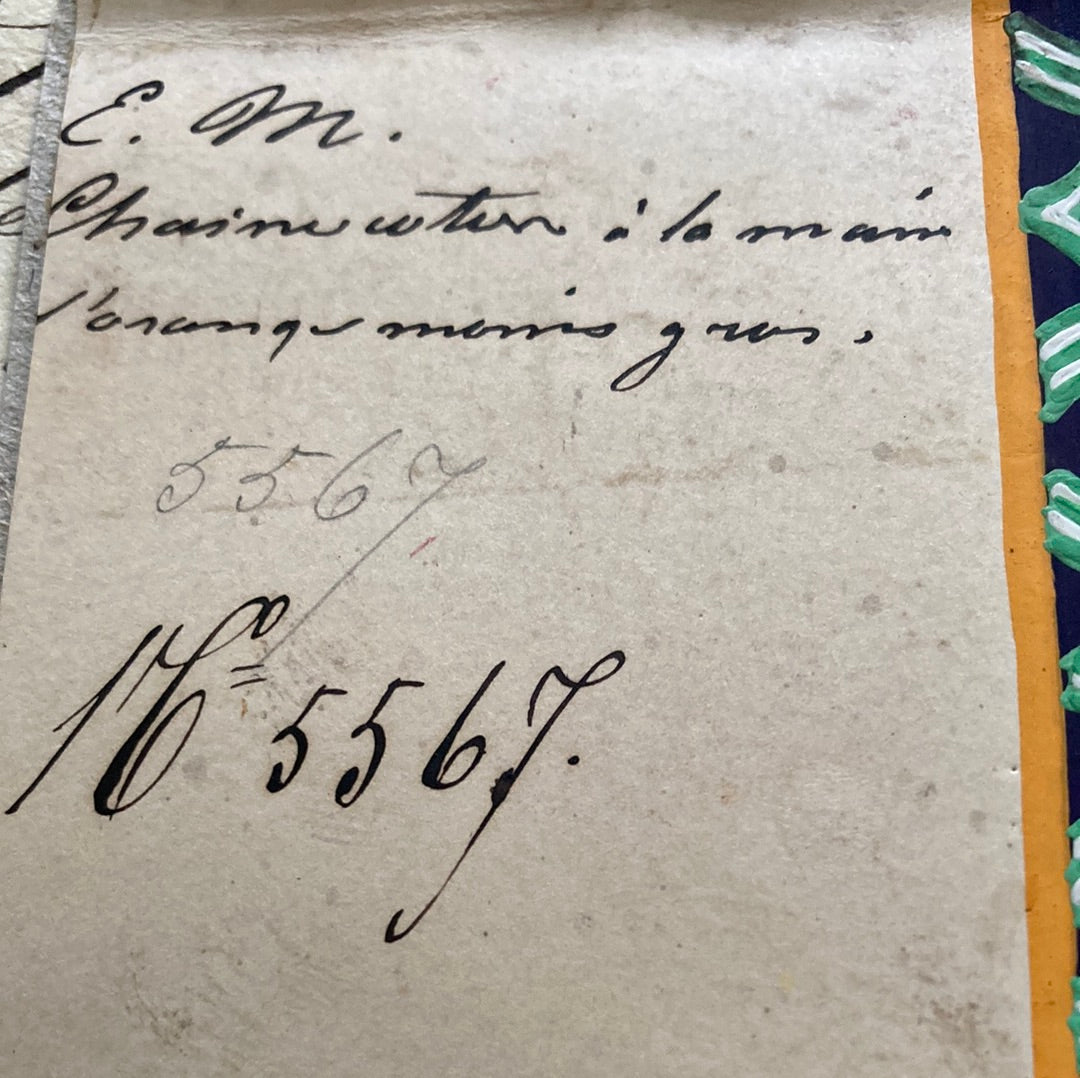 E. M.
Chaine coton à la main
l'orange moins gros.
5567
No 5567.